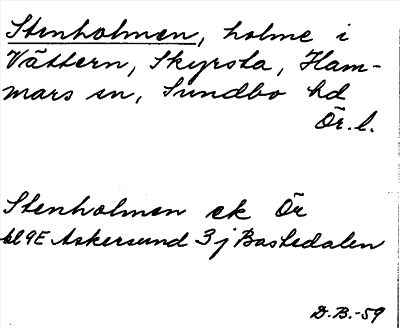 Stenholmen, holme i
Vättern, Skyrsta, Ham-
mars sn, Sundbo hd
Ör. l.
Stenholmen ek Ör
bl 9E Askersund 3 j Bastedalen
D.B.-59